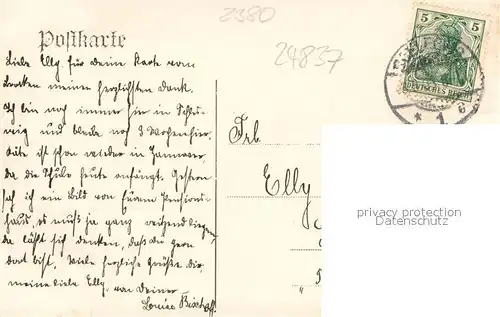 2380
24837
Postkarte
5 5
DEUTSCHES REICH
* 1 g
Liebe Elly für deine Karte vom
Brocken meinen herzlichsten Dank.
Ich bin noch immer hier in Schles-
wig und bleibe noch 3 Wochen hier.
Käte ist schon wieder in Hannover,
da die Schule heute anfängt. Gestern
sah ich ein Bild von Eurem Pensions-
haus, es muß ja ganz reizend liegen
da läßt sich denken, daß du gern
dort bist. Viele herzliche Grüße dir,
meine liebe Elly, von Deiner
Louise Bischoff.
Frl.
Elly
privacy protection
Datenschutz